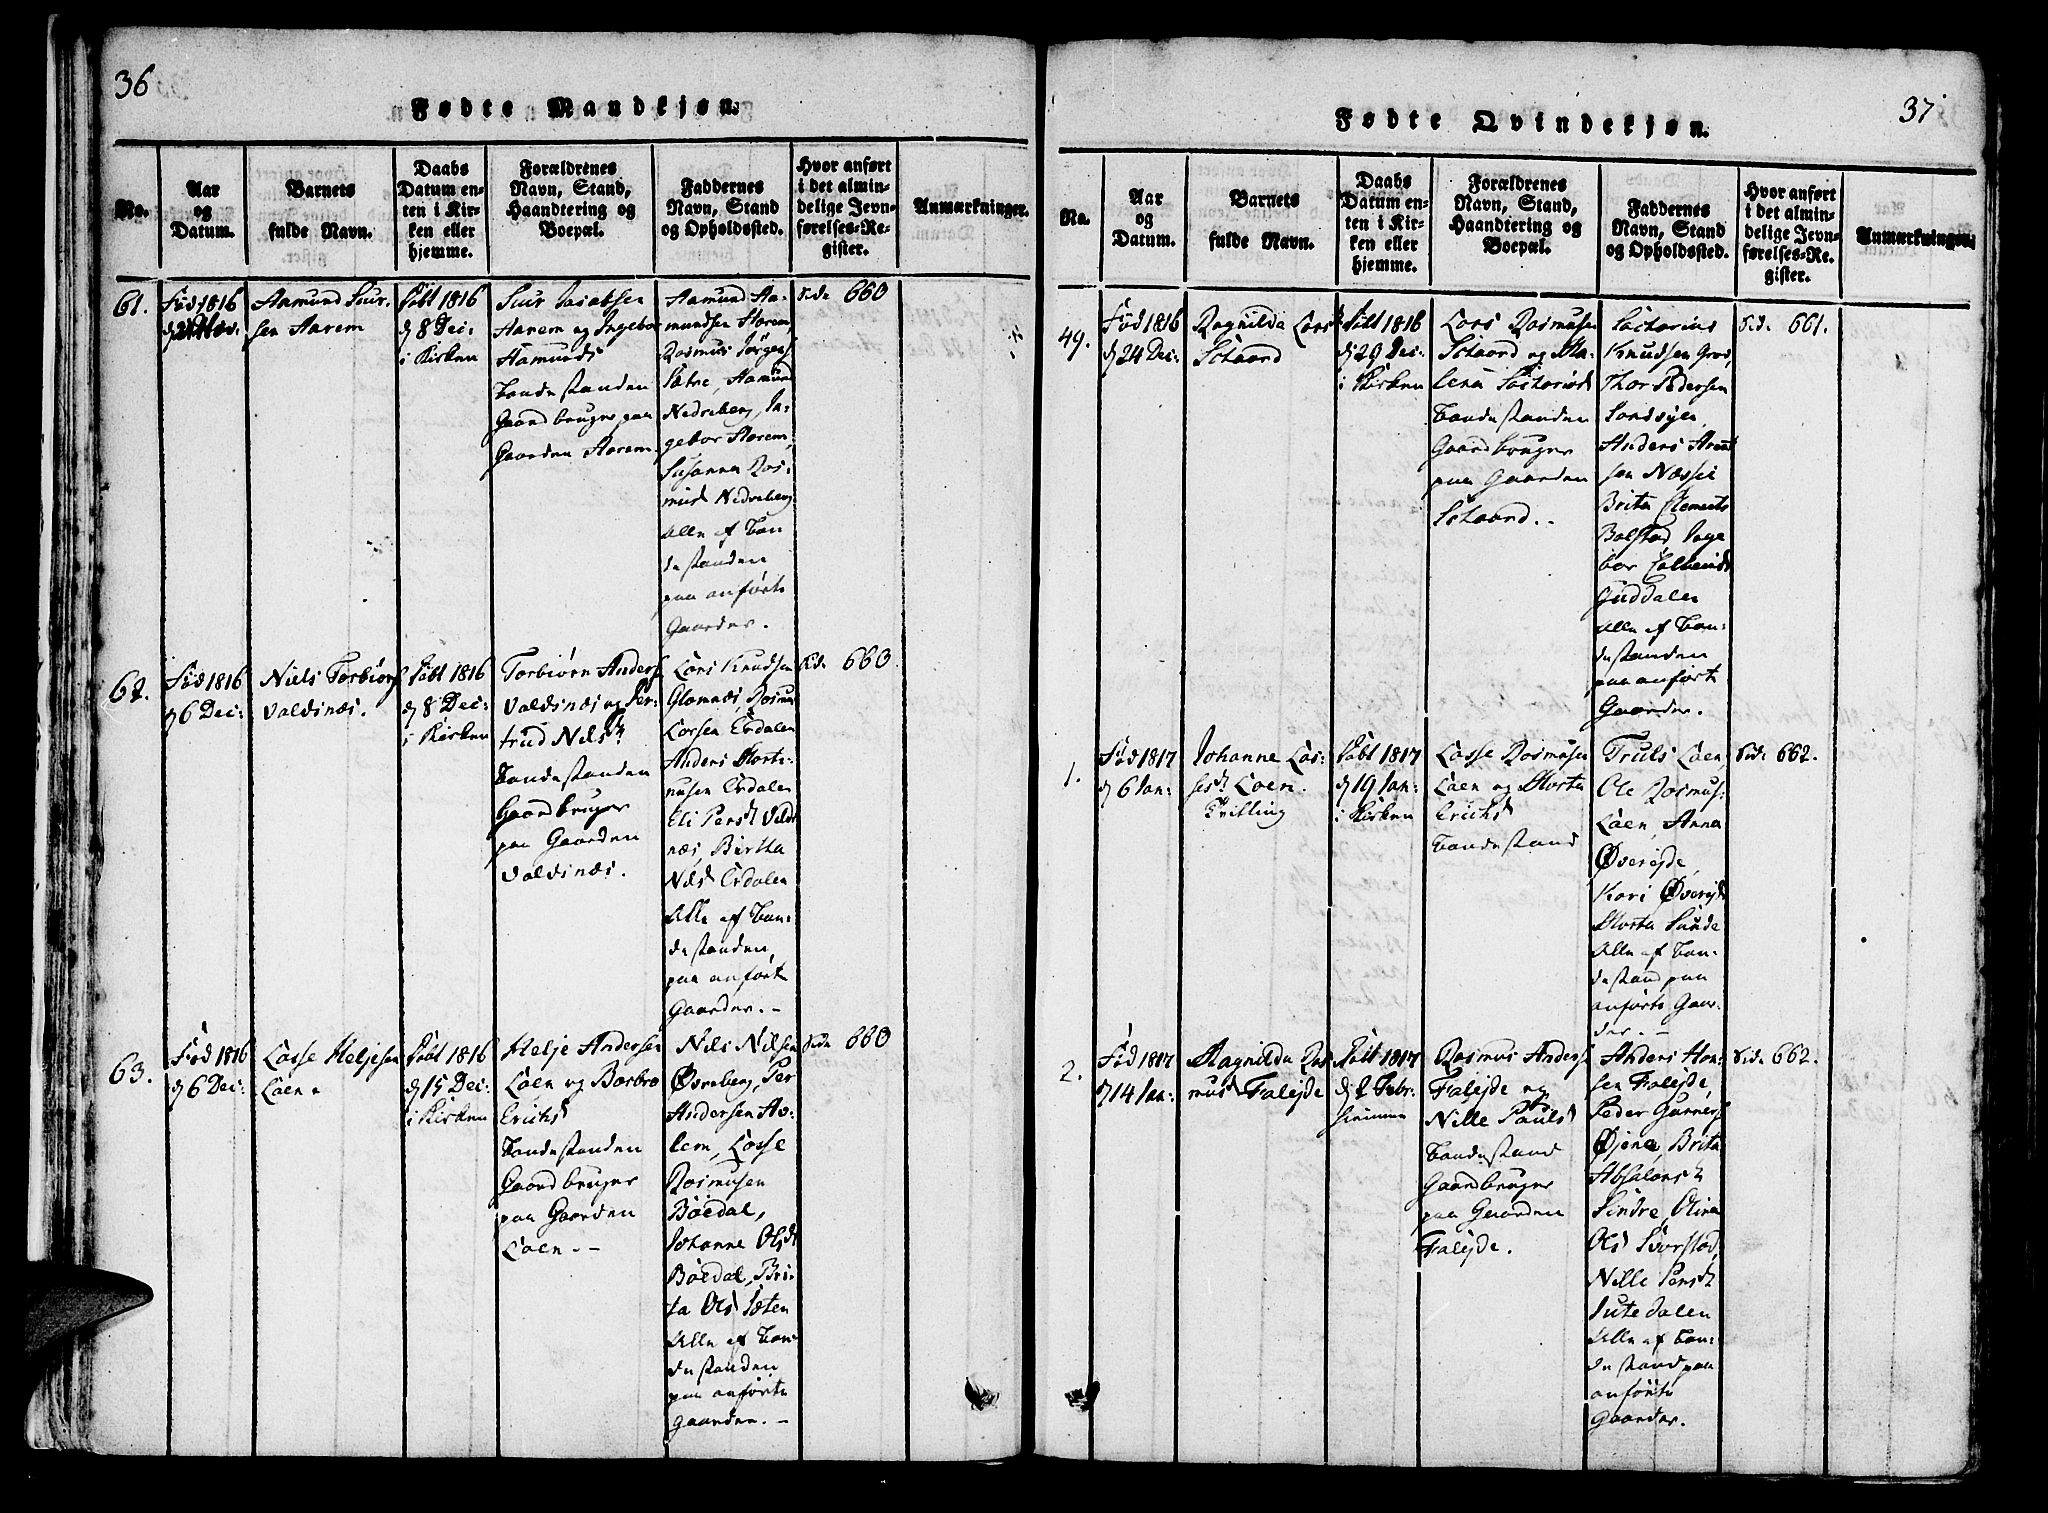 36
Fødte Mandkjøn.
No.
Aar
og
Datum.
Barnets
fulde Navn.
Daabs
Datum en-
ten i Kir-
ken eller
hjemme.
Forældrenes
Navn, Stand,
Haandtering og
Boepæl.
Faddernes
Navn, Stand
og Opholdssted.
Hvor anført
i det almin-
delige Jevn-
førelses-Re-
gister.
Anmærkninger.
61.
Fød 1816
Aamund
sen Aarem
Døbt 1816
d 8 Dec:
i Kirken
Siur Jacobsen
Aarem og Ingebor
Aamunds
Bondestanden
Gaardbruger paa
Gaarden Aarem
Aamund Aa-
mundsen Aarem,
Rasmus Jørgens
Sætre, Aamund
Nedreberg, In-
gebor Aarem,
Susanna Ras-
musd Nedreberg
Alle af Bon
destanden
paa anførte
Gaarder.
Side 660
62.
Fød 1816
d 6 Dec:
Niels Torbiørs
Valdsnæs.
Døbt 1816
d 8 Dec:
i Kirken
Torbiørn Anders
Valdsnæs og Jer-
trud Nilsd
Bondestanden
Gaardbruger
paa Gaarden
Valdsnæs.
Lars Knudsen
Glomnæs, Rasmus
Larsen Erdalen
Anders Morte-
nusen Erdalen
Eli Persd Valds
næs, Birtha
Nilsd Erdalen
Alle af Bon-
destanden,
paa anførte
Gaarder. –
Side 660
63.
Fød 1816
d 6 Dec:
Lasse Heljesen
Loen
Døbt 1816
d 15 Dec:
i Kirken
Helje Andersen
Loen og Barbro
Erichsd
Bondestanden
Gaardbruger
paa Gaarden
Loen. –
Nils Nilsen
Øvreberg, Per
Andersen Av-
lem, Lasse
Rasmusen
Bødal,
Johanne Olsd
Bødal, Bri-
ta Olsd Sæten
Alle af Bon-
destanden
paa anførte
gaarder. –
Side 660
37
Fødte Qvindekjøn.
No.
Aar
og
Datum.
Barnets
fulde Navn.
Daabs
Datum en-
ten i Kir-
ken eller
hjemme.
Forældrenes
Navn, Stand,
Haandtering og
Boepæl.
Faddernes
Navn, Stand
og Opholdssted.
Hvor anført
i det almin-
delige Jevn-
førelses-Re-
gister.
Anmærkninger.
49.
Fød 1816
d 24 Dec:
Ragnilda Lars
Døbt 1816
d 29 Dec:
i Kirken
Lars Rasmusen
og Ma-
lena
Bondestanden
Gaardbruger
paa Gaarden
Knudsen Grov,
Thor Pedersen
Sandvigen,
Anders Arent
sen Næsset
Brita Clements
Bolstad Inge
bor
Guddalen
Alle af Bon-
destanden
paa anførte
Gaarder.
Side 661.
1.
Fød 1817
d 6 Jan:
Johanne Las-
sesd Loen.
Tvilling
Døbt 1817
d 19 Jan:
i Kirken
Lasse Rasmusen
Loen og Marta
Erichsd
Bondestand
Truls Loen
Ole Rasmus-
Loen, Anna
Øvereide,
Kari Øvereid
Marta Sunde
Alle af Bon-
destand paa
anførte Gaar-
der. –
Side 662.
2.
Fød 1817
d 14 Jan:
Magnilda Ras
musd Faleide
Døbt 1817
d 2 Febr:
hiemme
Rasmus Anders
Faleide og
Nille Paulsd
Bondestand
Gaardbruger
paa Gaarden
Faleide.
Anders Han-
sen Faleide,
Peder Gunners
Øjene, Brita
Absalonsd
Sindre, Olina
Olsd
Nille Persd
Jutedalen
Alle af Bon-
destand paa
anførte
Gaarder.
Side 662.